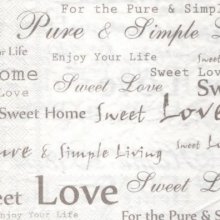 For the Pure & Simpl
Pure & Simple L
Enjoy Your Life
r Life
Sweet Love
ome
Love
Sweet Love
Sw
Sweet Home Sweet Love
Pure & Simple Living
Sweet Love
Sweet L
Enjoy Your Life
For the Pure & S